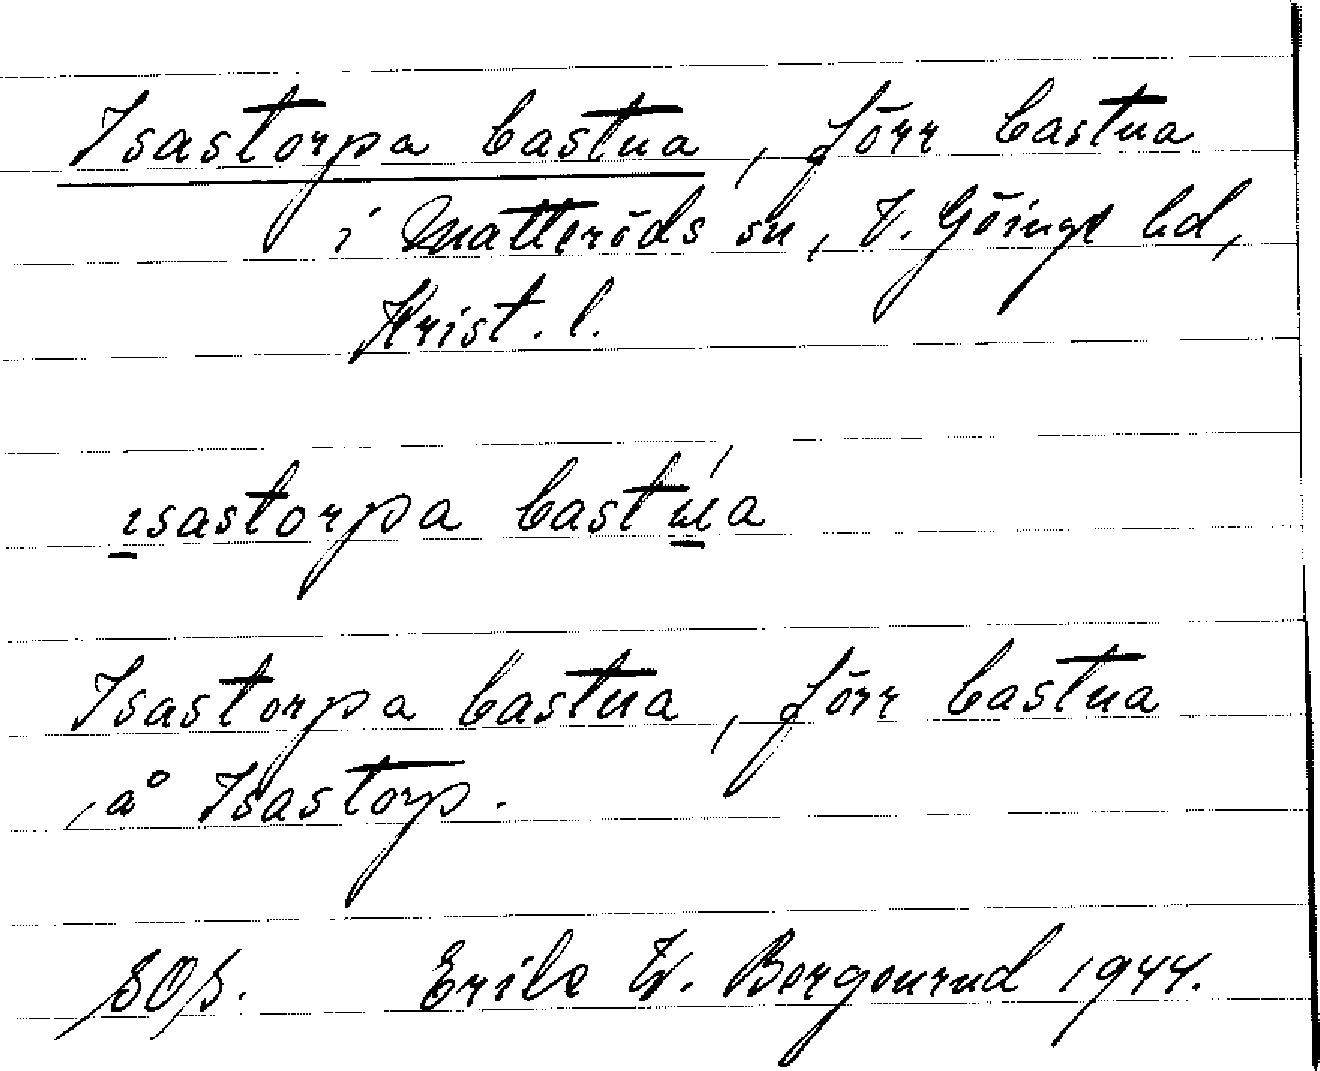 Isastorpa bastua, förr bastua
i Matteröds sn, V. Göinge hd,
Krist. l.
ısastorpa bastúa
Isastorpa bastua, förr bastua
å Isastorp.
SOS. Erik W. Bergenrud 1944.